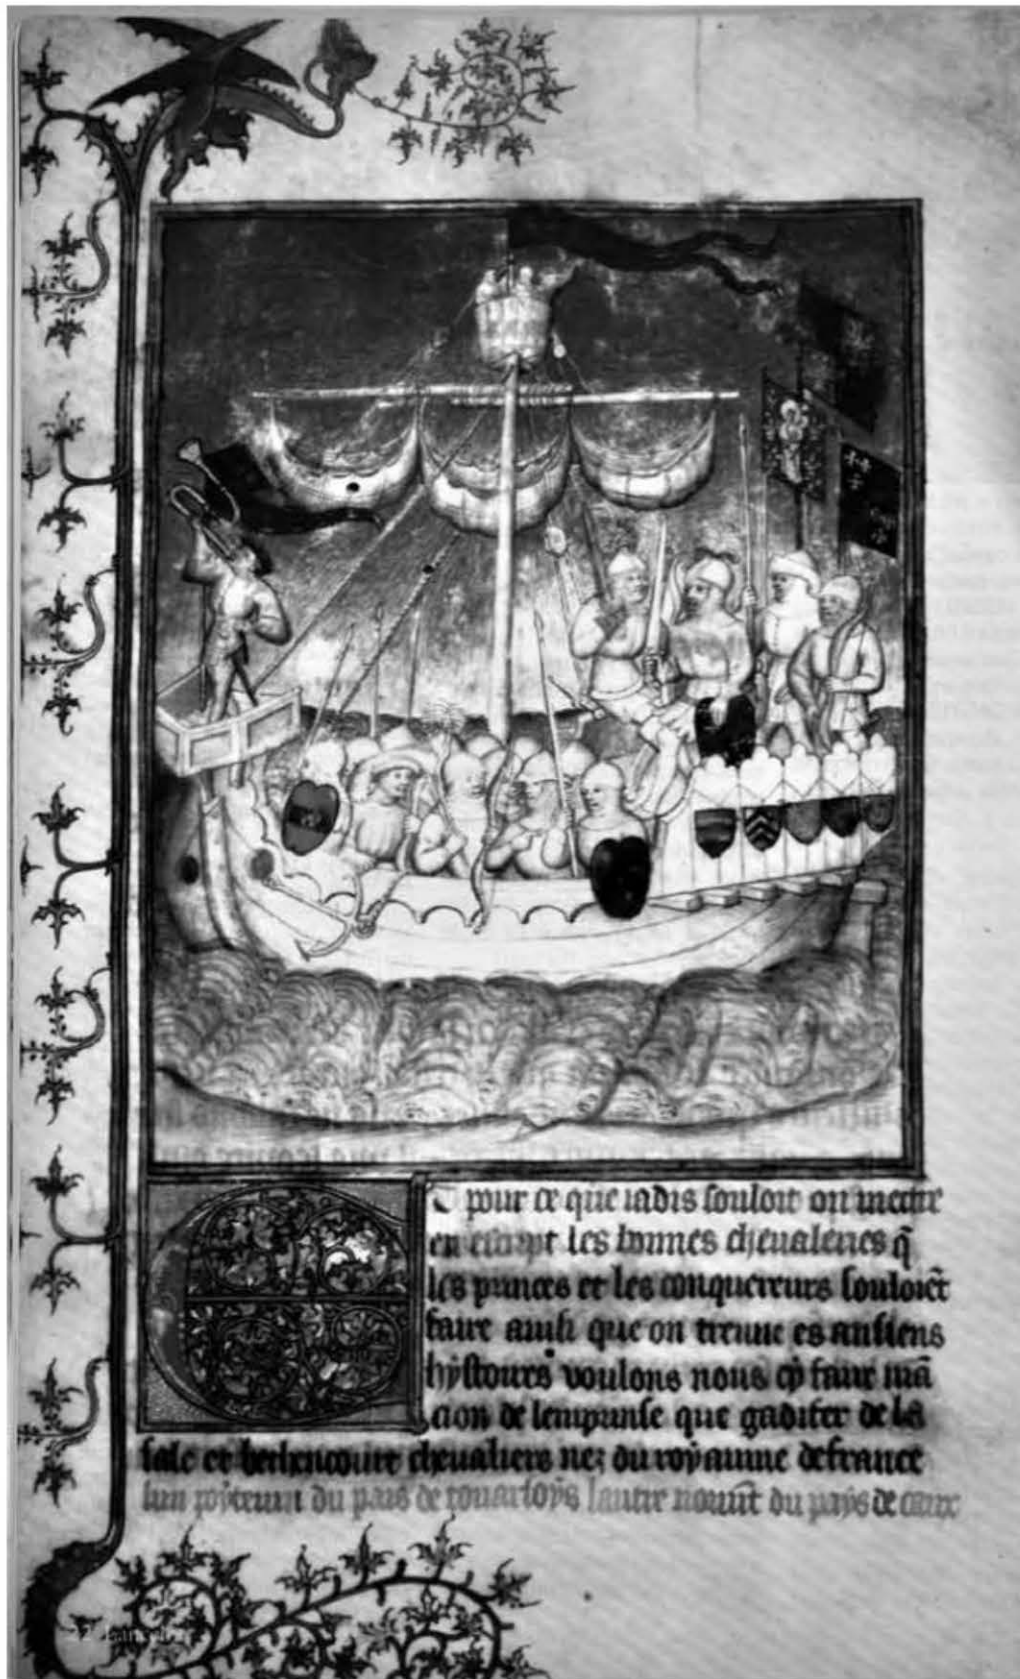 Et pour ce que iadis souloit on mectre
en escript les bonnes cheualeries q̃
les princes et les conquereurs souloiẽt
faire ainsi que on treuue es ansiens
hystoires voulons nous cy faire mã
cion de lemprinse que gadifer de la
sale et bethencourt cheualiers nez du royaume de france
lun poyteuin du pais de touarsoys lautre nomũt du pays de caux